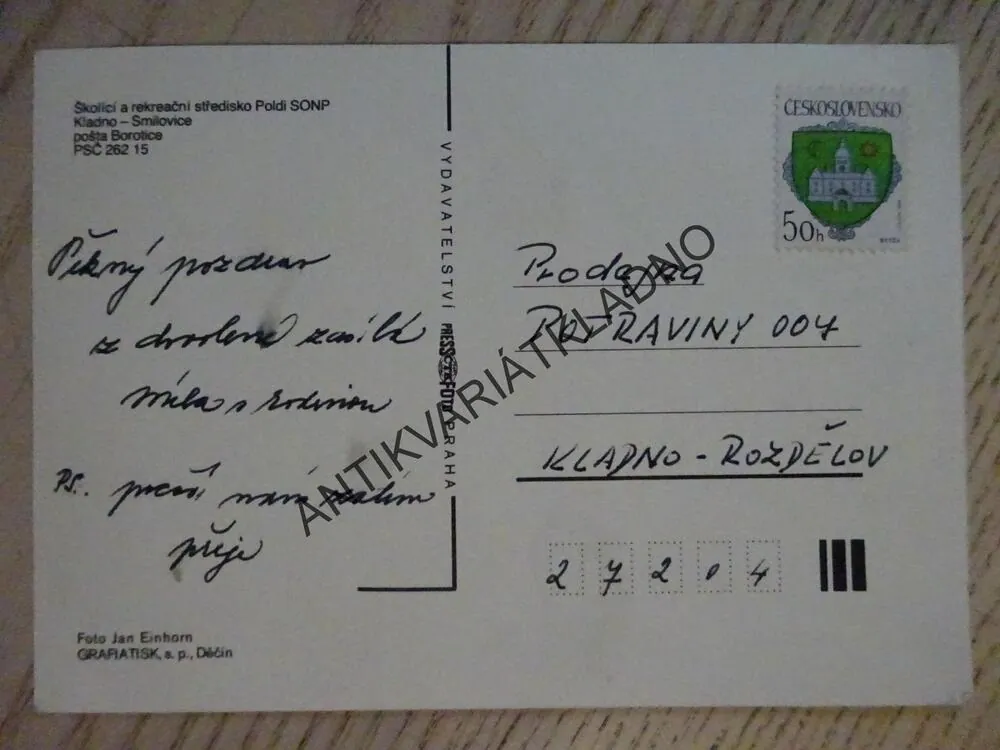 Školící a rekreační středisko Poldi SONP
Kladno – Smilovice
pošta Borotice
PSČ 262 15
Pěkný pozdrav
z dovolené zasílá
Míla s rodinou
PS. počasí nám zatím
přeje
Foto Jan Einhorn
GRAFIATISK, s. p., Děčín
VYDAVATELSTVÍ PRESSFOTO PRAHA
ČESKOSLOVENSKO
50h
Prodejna
POTRAVINY 007
KLADNO - ROZDĚLOV
27204
ANTIKVARIÁTKLADNO